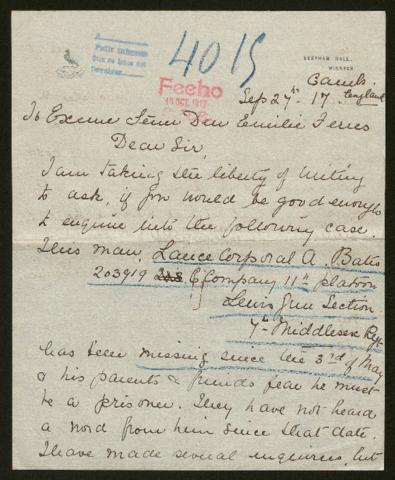 4015
DEEPHAM HALL,
WISBECH
Cambs.
England
Feeho
16 OCT. 1917
Sep 27th 17.
To Excme Senr Don Emilie Ferres
Dear Sir,
I am taking the liberty of writing
to ask, if you would be good enough
to enquire into the following case.
This man, Lance Corporal A. Bates
203919 C Company 11th platoon
Lewis Gun Section
7th Middlesex Rgt
has been missing since the 3rd of May
& his parents & friends fear he must
be a prisoner. They have not heard
a word from him since that date.
I have made several enquiries, but